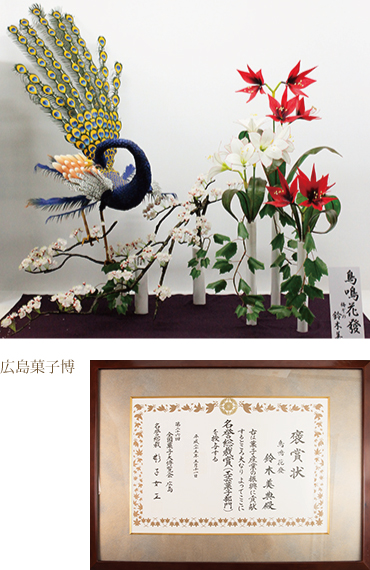 鳥鳴花發
鈴木美
広島菓子博
褒賞状
鳥鳴花發
鈴木美典殿
右は菓子産業の振興に貢献
するところ大なり よってここに
名誉総裁賞(工芸菓子部門)
を授与する
第二十六回
全国菓子大博覧会・広島
名誉総裁 彬子女王